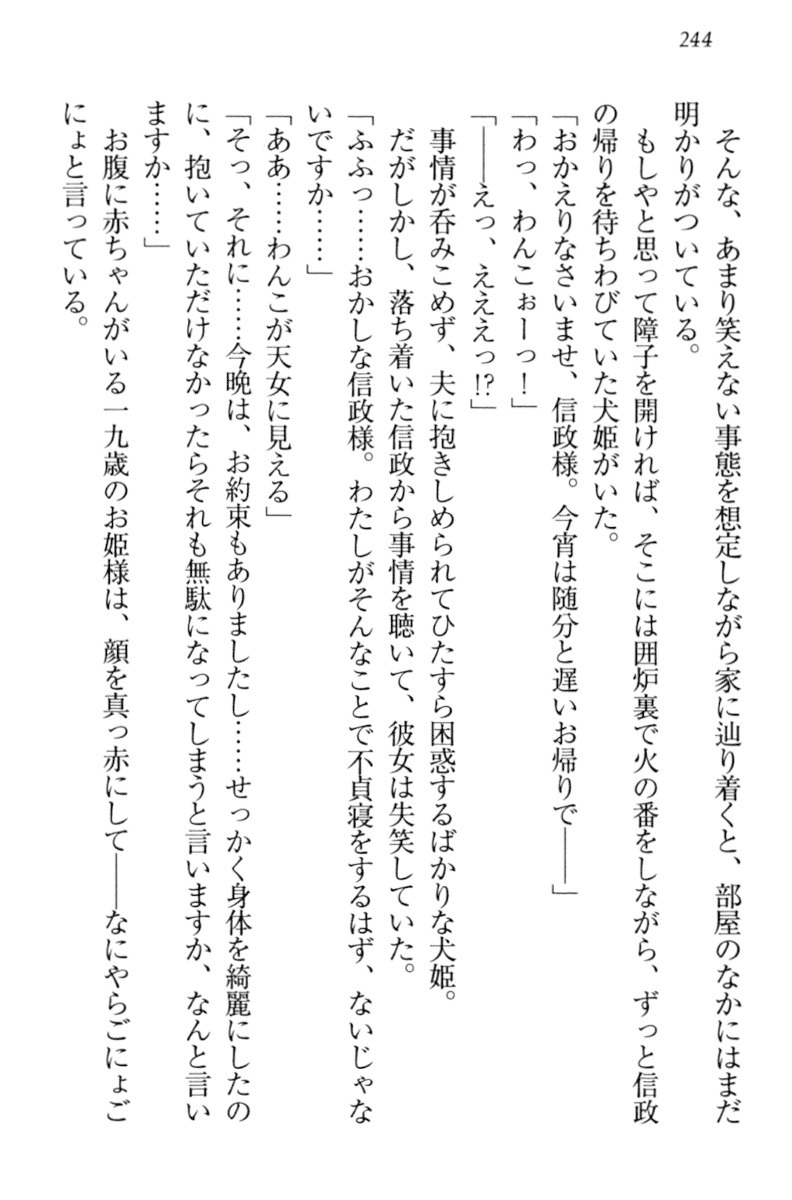 244
そんな、あまり笑えない事態を想定しながら家に辿り着くと、部屋のなかにはまだ
明かりがついている。
もしやと思って障子を開ければ、そこには囲炉裏で火の番をしながら、ずっと信政
の帰りを待ちわびていた犬姫がいた。
「おかえりなさいませ、信政様。今宵は随分と遅いお帰りで――」
「わっ、わんこぉーっ！」
「――えっ、えええっ!?」
事情が呑みこめず、夫に抱きしめられてひたすら困惑するばかりな犬姫。
だがしかし、落ち着いた信政から事情を聴いて、彼女は失笑していた。
「ふふっ……おかしな信政様。わたしがそんなことで不貞寝をするはず、ないじゃな
いですか……」
「ああ……わんこが天女に見える」
「そっ、それに……今晩は、お約束もありましたし……せっかく身体を綺麗にしたの
に、抱いていただけなかったらそれも無駄になってしまうと言いますか、なんと言い
ますか……」
お腹に赤ちゃんがいる一九歳のお姫様は、顔を真っ赤にして――なにやらごにょご
にょと言っている。